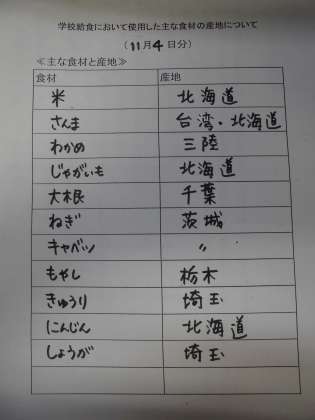 学校給食において使用した主な食材の産地について
（11月4日分）
≪主な食材と産地≫
食材 産地
米 北海道
さんま 台湾・北海道
わかめ 三陸
じゃがいも 北海道
大根 千葉
ねぎ 茨城
キャベツ 〃
もやし 栃木
きゅうり 埼玉
にんじん 北海道
しょうが 埼玉